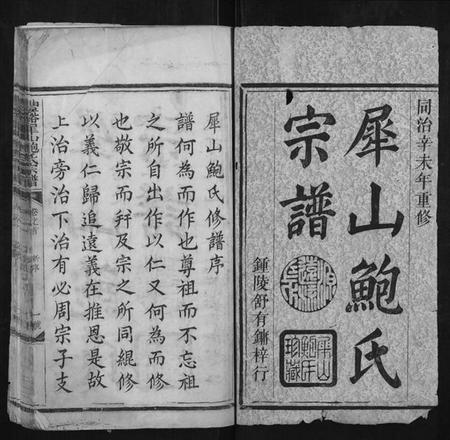 同治辛未年重修
犀山鮑氏
宗譜
鍾陵舒有鏞梓行
犀山
鮑氏
珍藏
犀山鮑氏修譜序
譜何為而作也尊祖而不忘祖
之所自出作以仁又何為而修
也敬宗而幷及宗之所同緄修
以義仁歸追遠義在推恩是故
上治旁治下治有必周宗子支